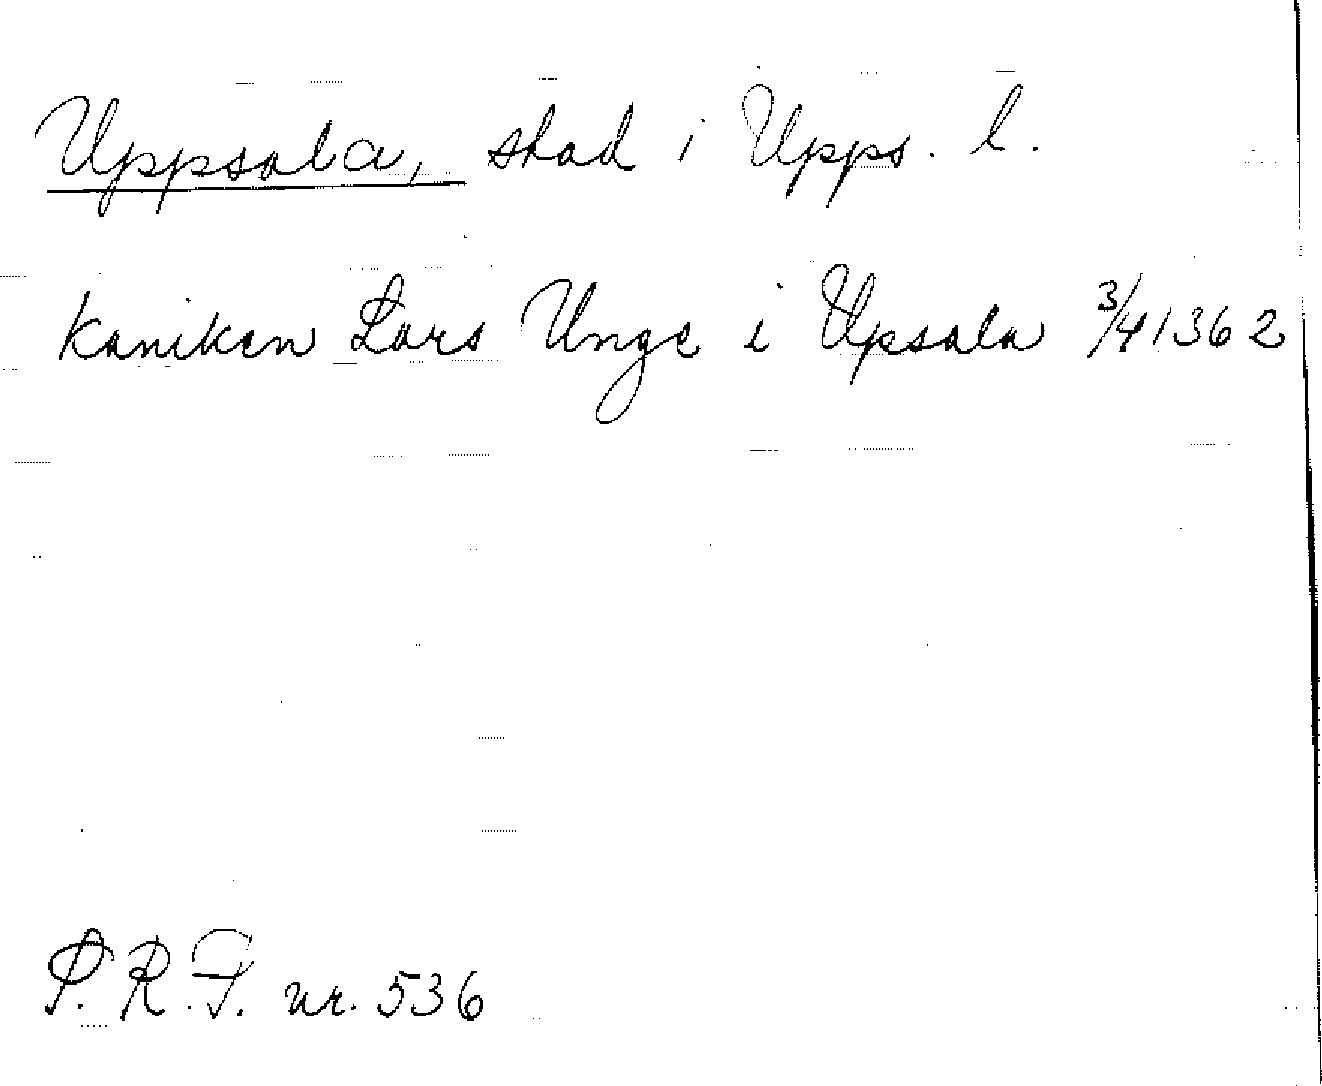 Uppsala, stad i Upps. l.
kaniken Lars Unge i Upsala 3/4 1362
P.R.F. nr. 536